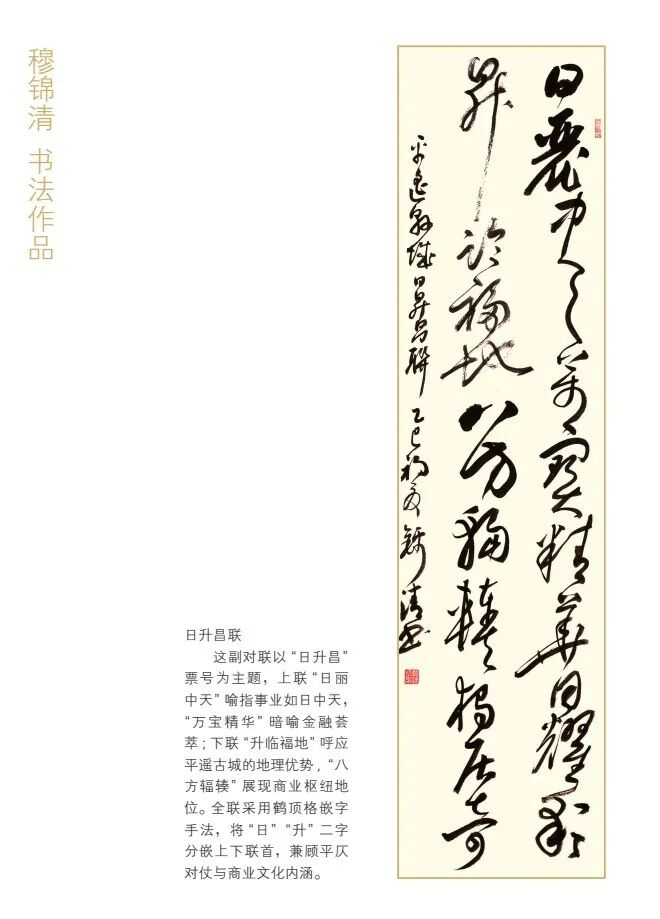 穆锦清 书法作品
日麗中天萬寶精華同耀彩
昇臨福地八方輻輳獨居奇
平遥縣城日昇昌聯 乙巳初夏 錦清書
日升昌联
这副对联以“日升昌”
票号为主题，上联“日丽
中天”喻指事业如日中天，
“万宝精华”暗喻金融荟
萃；下联“升临福地”呼应
平遥古城的地理优势，“八
方辐辏”展现商业枢纽地
位。全联采用鹤顶格嵌字
手法，将“日”“升”二字
分嵌上下联首，兼顾平仄
对仗与商业文化内涵。